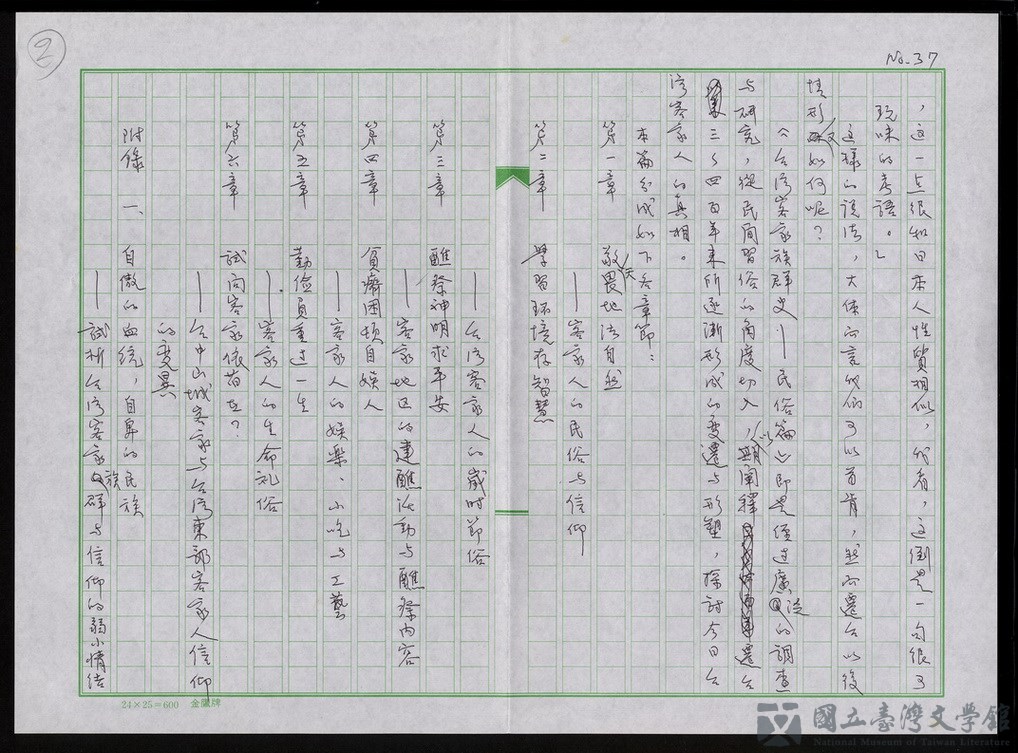 No.37
2
，這一点很和日本人性質相似，我看，這倒是一句很可
玩味的考語。」
這樣的說法，大体而言我們可以首肯，然而遷台以後
情形又如何呢？
《台湾客家族群史——民俗篇》即是經过廣泛的調查
与研究，從民间習俗的角度切入，以闡釋遷台
三、四百年來所逐漸形成的变遷与形塑，探討今日台
湾客家人的真相。
本篇分成如下各章節：
第一章 敬天畏地法自然
——客家人的民俗与信仰
第二章 學習环境存智慧
——台湾客家人的歲时節俗
第三章 醮祭神明求平安
——客家地区的建醮活動与醮祭内容
第四章 貧瘠困頓自娱人
——客家人的娱樂、小吃与工藝
第五章 勤儉負重过一生
——客家人的生命礼俗
第六章 試问客家依舊在？
——台中山城客家与台湾東部客家人信仰
的变異
附錄 一、自傲的血統，自卑的民族
——試析台湾客家族群与信仰的弱小情结
24×25=600 金鷹牌
國立臺灣文學館
National Museum of Taiwan Literature